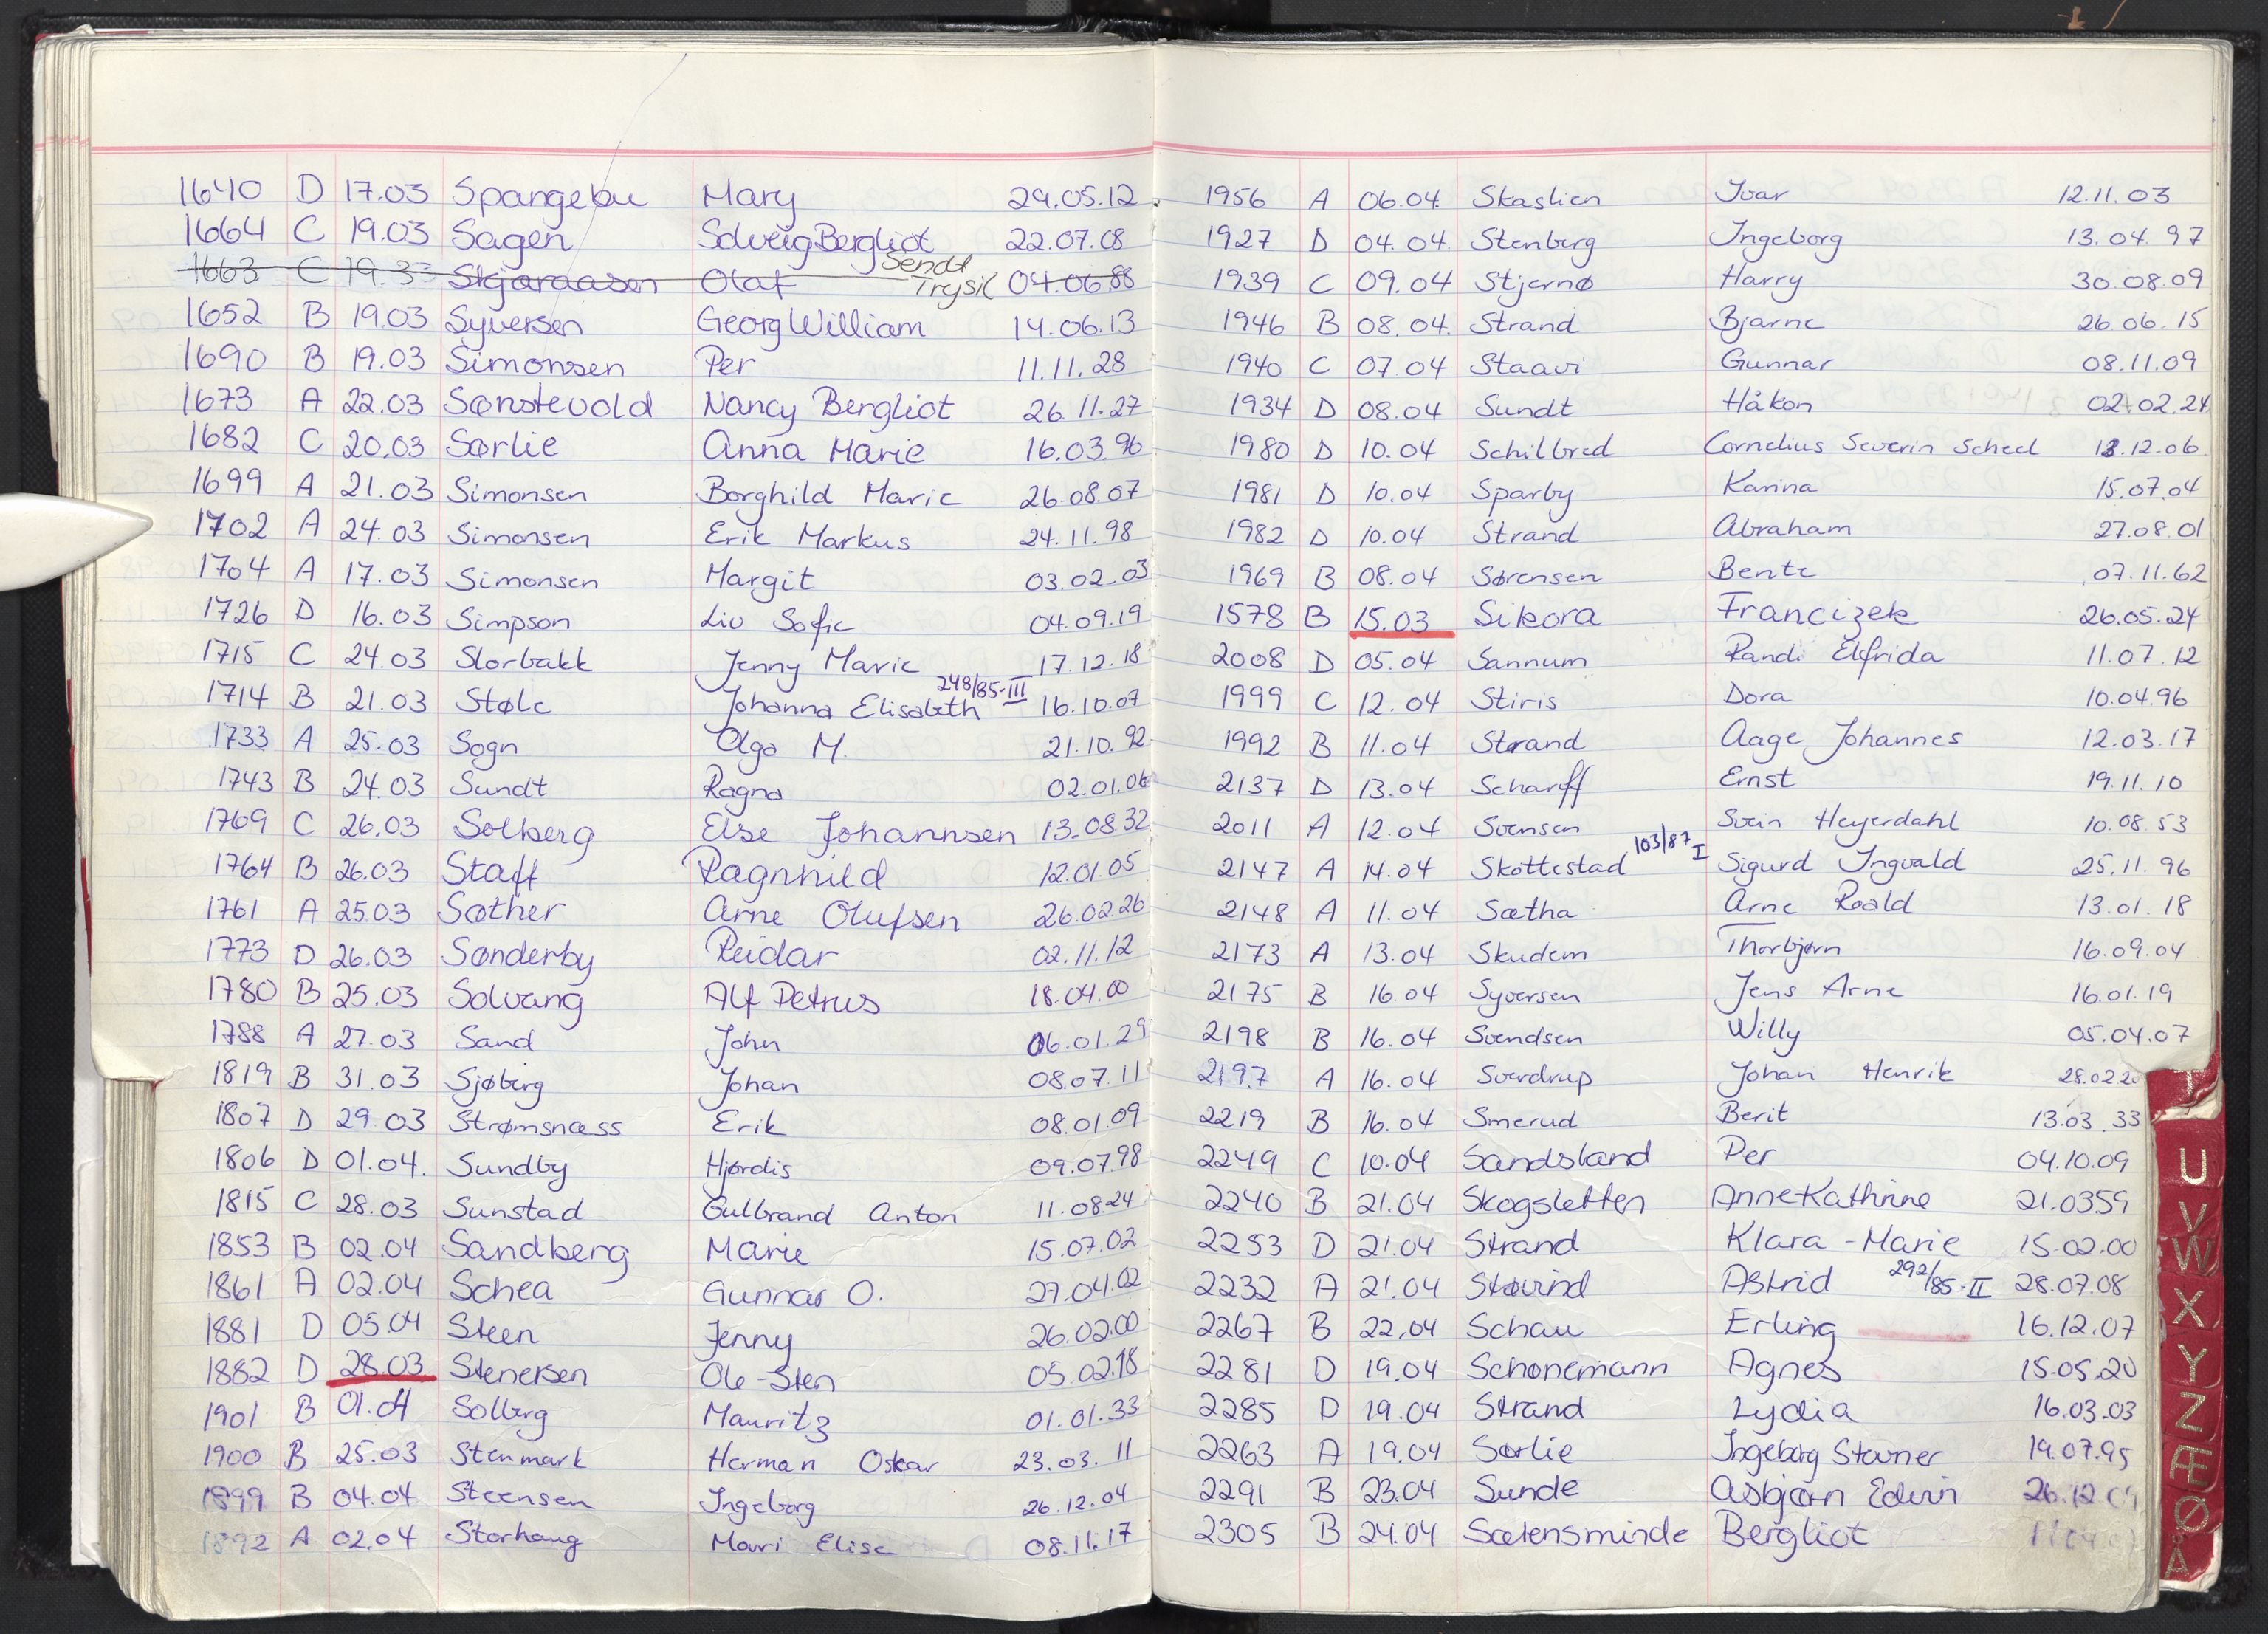 1640 D 17.03 Spangebu Mary 29.05.12
1664 C 19.03 Sagen Solveig Bergliot 22.07.08
Sendt
1663 C 19.3 Skjaraasen Olaf Trysil 04.06.88
1652 B 19.03 Syversen Georg William 14.06.13
1690 B 19.03 Simonsen Per 11.11.28
1673 A 22.03 Sønstevold Nancy Bergliot 26.11.27
1682 C 20.03 Sørlie Anna Marie 16.03.96
1699 A 21.03 Simonsen Borghild Marie 26.08.07
1702 A 24.03 Simonsen Erik Markus 24.11.98
1704 A 17.03 Simonsen Margit 03.02.03
1726 D 16.03 Simpson Liv Sofie 04.09.19
1715 C 24.03 Slorbakk Jenny Marie 17.12.18
248/85-III
1714 B 21.03 Støle Johanna Elisabeth 16.10.07
1733 A 25.03 Sogn Olga M. 21.10.92
1743 B 24.03 Sundt Ragna 02.01.06
1769 C 26.03 Solberg Else Johannsen 13.08.32
1764 B 26.03 Staff Ragnhild 12.01.05
1761 A 25.03 Sæther Arne Olufsen 26.02.26
1773 D 26.03 Sønderby Reidar 02.11.12
1780 B 25.03 Solvang Alf Petrus 18.04.00
1788 A 27.03 Sand John 06.01.29
1819 B 31.03 Sjøberg Johan 08.07.11
1807 D 29.03 Strømsnæss Erik 08.01.09
1806 D 01.04. Sundby Hjørdis 09.07.98
1815 C 28.03 Sunstad Gulbrand Anton 11.08.24
1853 B 02.04 Sandberg Marie 15.07.02
1861 A 02.04 Schea Gunnar O. 27.04.02
1881 D 05.04 Steen Jenny 26.02.00
1882 D 28.03 Stenersen Ole-Sten 05.02.18
1901 B 01.04 Solberg Mauritz 01.01.33
1900 B 25.03 Stenmark Herman Oskar 23.03.11
1899 B 04.04 Steensen Ingeborg 26.12.04
1892 A 02.04 Storhaug Mari Elise 08.11.17
1956 A 06.04. Skaslien Ivar 12.11.03
1927 D 04.04. Stenberg Ingeborg 13.04.97
1939 C 09.04 Stjernø Harry 30.08.09
1946 B 08.04. Strand Bjarne 26.06.15
1940 C 07.04 Staavi Gunnar 08.11.09
1934 D 08.04 Sundt Håkon 02.02.24
1980 D 10.04 Schilbred Cornelius Severin Scheel 13.12.06
1981 D 10.04 Sparby Karina 15.07.04
1982 D 10.04 Strand Abraham 27.08.01
1969 B 08.04 Sørensen Bente 07.11.62
1578 B 15.03 Sikora Francizek 26.05.24
2008 D 05.04 Sannum Randi Elfrida 11.07.12
1999 C 12.04 Stiris Dora 10.04.96
1992 B 11.04 Strand Aage Johannes 12.03.17
2137 D 13.04 Scharff Ernst 19.11.10
2011 A 12.04 Svensen Svein Heyerdahl 10.08.53
103/87 I
2147 A 14.04 Skottestad Sigurd Ingvald 25.11.96
2148 A 11.04 Sætha Arne Roald 13.01.18
2173 A 13.04 Skudem Thorbjørn 16.09.04
2175 B 16.04 Syversen Jens Arne 16.01.19
2198 B 16.04 Svendsen Willy 05.04.07
2197 A 16.04 Sverdrup Johan Henrik 28.02.20
2219 B 16.04 Smerud Berit 13.03.33
2249 C 10.04 Sandsland Per 04.10.09
2240 B 21.04 Skogsletten Anne Kathrine 21.03.59
2253 D 21.04 Strand Klara-Marie 15.02.00
2232 A 21.04 Støvind Astrid 292/85-II 28.07.08
2267 B 22.04 Schau Erling 16.12.07
2281 D 19.04 Schønemann Agnes 15.05.20
2285 D 19.04 Strand Lydia 16.03.03
2263 A 19.04 Sørlie Ingeborg Stovner 19.07.95
2291 B 23.04 Sunde Asbjørn Edvin 26.12
2305 B 24.04 Sætensminde Bergliot
U
V
W
X
Y
Z
Æ
Ø
Å